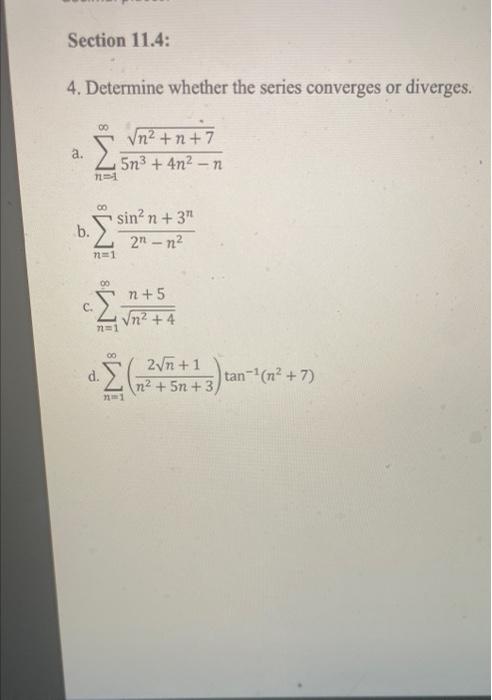 Section 11.4:
4. Determine whether the series converges or diverges.
a. ∑_{n=1}^{∞} √(n² + n + 7) / (5n³ + 4n² − n)
b. ∑_{n=1}^{∞} (sin² n + 3ⁿ) / (2ⁿ − n²)
c. ∑_{n=1}^{∞} (n + 5) / √(n² + 4)
d. ∑_{n=1}^{∞} ((2√n + 1) / (n² + 5n + 3)) tan⁻¹(n² + 7)